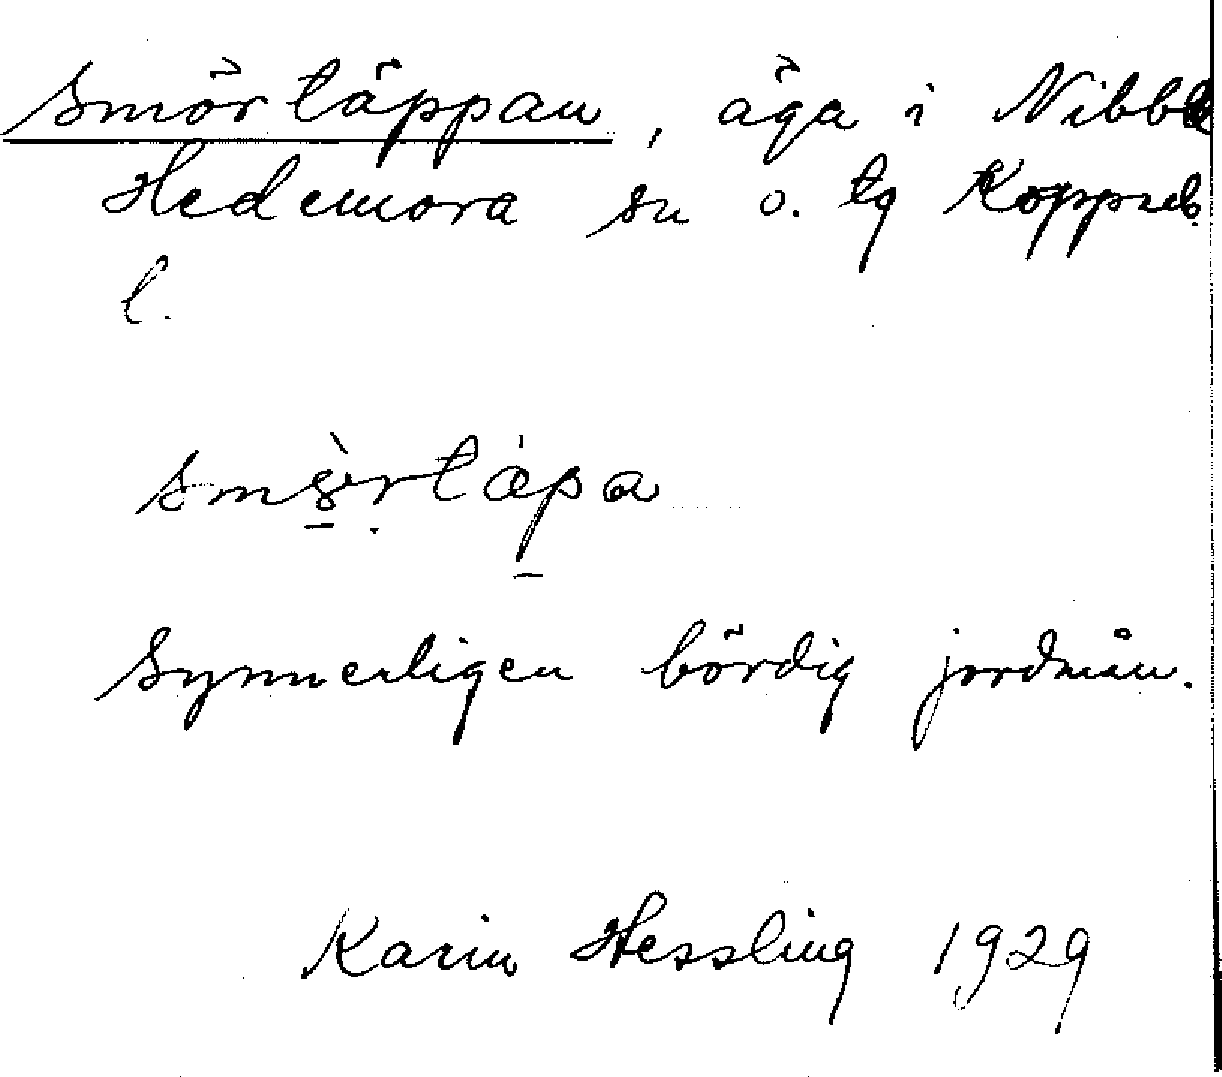 Smörtäppan, äga i Nibble
Hedemora sn o. tg Koppab.
l.
Synnerligen bördig jordmån.
Karin Hessling 1929